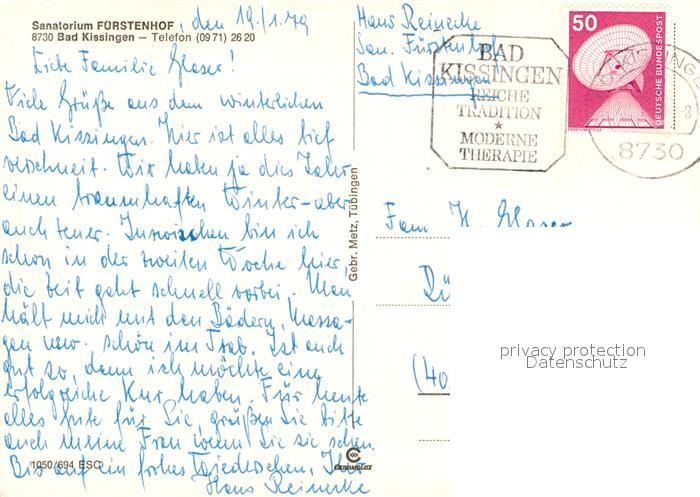 Sanatorium FÜRSTENHOF
8730 Bad Kissingen – Telefon (09 71) 26 20
, den 19./1.79
Liebe Familie Glaser!
Viele Grüße aus dem winterlichen
Bad Kissingen. Hier ist alles tief
verschneit. Wir haben ja dies Jahr
einen traumhaften Winter - aber
auch teuer. Inzwischen bin ich
schon in der zweiten Woche hier,
die Zeit geht schnell vorbei. Man
hält mich mit den Bädern, Massa-
gen usw. schön im Trab. Ist auch
gut so, denn ich möchte eine
erfolgreiche Kur haben. Für heute
alles Gute für Sie, grüßen Sie bitte
auch meine Frau wenn Sie sie sehen.
Bis auf ein frohes Wiedersehen, Ihr
Hans Reinecke
1050/694 ESC
Gebr. Metz, Tübingen
CHROMOLUX
Hans Reinecke
San. Fürstenhof
Bad Kissingen
BAD
KISSINGEN
REICHE
TRADITION
★
MODERNE
THERAPIE
50
DEUTSCHE BUNDESPOST
8730
Fam. H. Glaser
Dü
(40
privacy protection
Datenschutz